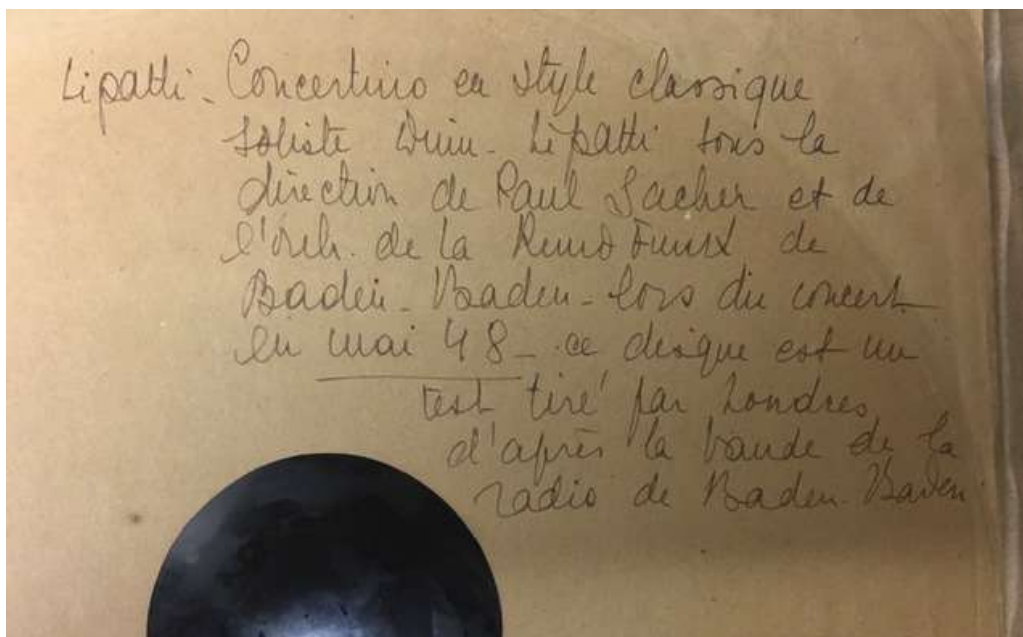 Lipatti - Concertino en style classique
soliste Dinu - Lipatti sous la
direction de Paul Sacher et de
l'orch. de la Rund Funk de
Baden - Baden - lors du concert
en mai 48 - ce disque est un
test tiré par Londres
d'après la bande de la
radio de Baden-Baden